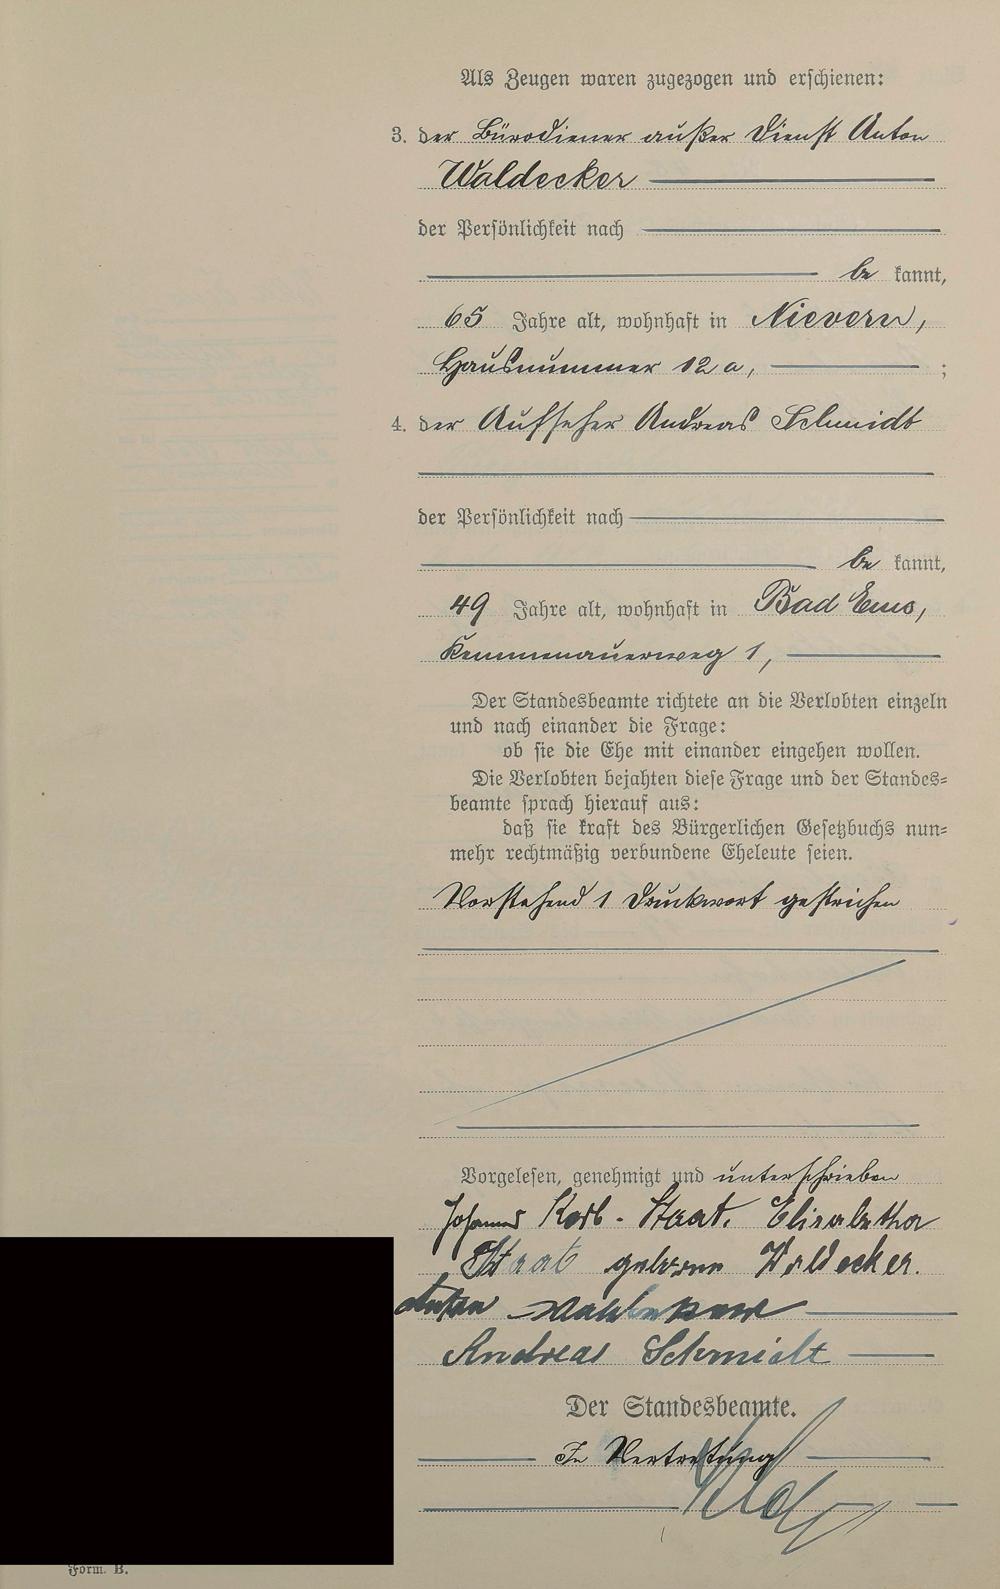 Als Zeugen waren zugezogen und erschienen:
3. der Bürodiener außer Dienst Anton
Waldecker
der Persönlichkeit nach
be kannt,
65 Jahre alt, wohnhaft in Nievern,
Hausnummer 12a, ;
4. der Aufseher Andreas Schmidt
der Persönlichkeit nach
be kannt,
49 Jahre alt, wohnhaft in Bad Ems,
Kemmenauerweg 1,
Der Standesbeamte richtete an die Verlobten einzeln
und nach einander die Frage:
ob sie die Ehe mit einander eingehen wollen.
Die Verlobten bejahten diese Frage und der Standes-
beamte sprach hierauf aus:
daß sie kraft des Bürgerlichen Gesetzbuchs nun-
mehr rechtmäßig verbundene Eheleute seien.
Vorstehend 1 Druckwort gestrichen
Vorgelesen, genehmigt und unterschrieben
Johannes Karl Staat. Elisabetha
Staat geborene Waldecker.
Anton Waldecker
Andreas Schmidt
Der Standesbeamte.
In Vertretung
Form. B.